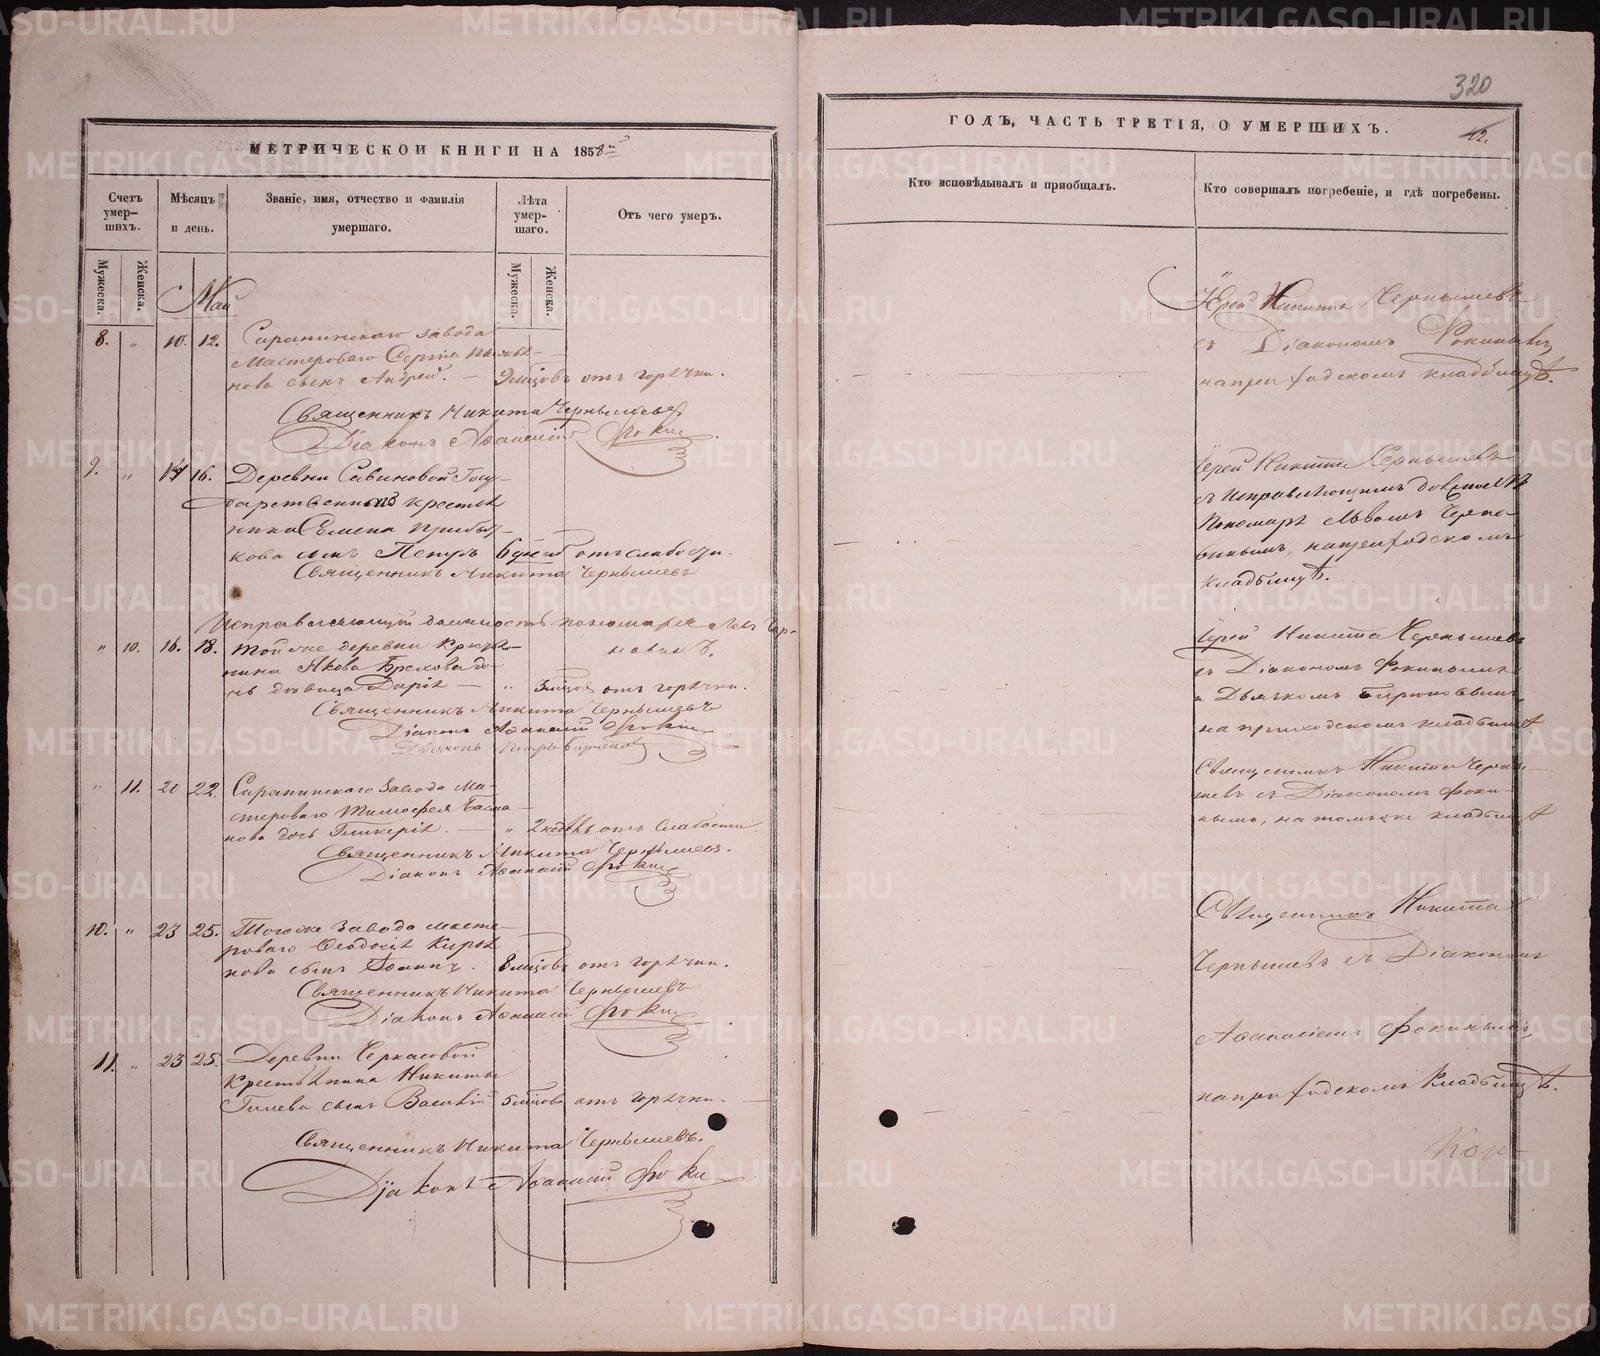 320
МЕТРИЧЕСКОЙ КНИГИ НА 1858й
ГОДЪ, ЧАСТЬ ТРЕТІЯ, О УМЕРШИХЪ.
42.
Счетъ умер-шихъ.
Мѣсяцъ и день.
Званіе, имя, отчество и фамилія умершаго.
Лѣта умер-шаго.
Отъ чего умеръ.
Кто исповѣдывалъ и пріобщалъ.
Кто совершалъ погребеніе, и гдѣ погребены.
Мужеска.
Женска.
Мужеска.
Женска.
Май
8. „ 10. 12. Саранинскаго завода
Мастероваго Сергія
нова сынъ Андрей. — 9 мцовъ отъ горячки.
Священникъ Никита Чернышевъ
Діаконъ Аѳанасій Фокин
Іерей Никита Чернышевъ
съ Діакономъ Фокинымъ
на приходскомъ кладбищѣ.
9. „ 14 16. Деревни Савиновой Госу-
дарственнаго крестья
нина Семена Прибыт-
кова сынъ Петръ 6 дней отъ слабости.
Священникъ Никита Чернышевъ
Исправляющій должность пономаря Левъ Чер-
навинъ.
Іерей Никита Чернышевъ
съ Исправляющимъ должность
Пономаря Львомъ Черна-
винымъ, на приходскомъ
кладбищѣ.
„ 10. 16. 18. Той же деревни Крестья-
нина Якова Брехова до
чь дѣвица Дарія — „ 3 мцовъ отъ горячки.
Священникъ Никита Чернышевъ
Діаконъ Аѳанасій Фокин
Дьячекъ Петръ Бирюковъ
Іерей Никита Чернышевъ
съ Діакономъ Фокинымъ
и Дьячкомъ Бирюковымъ
на приходскомъ кладбищѣ
„ 11. 20 22. Саранинскаго Завода Ма-
стероваго Тимофея
нова дочь Гликерія. — „ 2 недѣль отъ слабости
Священникъ Никита Чернышевъ.
Діаконъ Аѳанасій Фокин
Священникъ Никита Черны-
шевъ съ Діакономъ Фоки-
нымъ, на томъ же кладбищѣ
10. „ 23 25. Тогоже Завода масте-
роваго Ѳеодосія Кирья
нова сынъ Іоаннъ. 8 мцовъ отъ горячки.
Священникъ Никита Чернышевъ
Діаконъ Аѳанасій Фокин
Священникъ Никита
Чернышевъ съ Діакономъ
Аѳанасіемъ Фокинымъ,
на приходскомъ кладбищѣ.
11. „ 23 25. Деревни Черкасовой
Крестьянина Никиты
Гилева сынъ Василій 5 мцовъ отъ горячки.
Священникъ Никита Чернышевъ.
Діаконъ Аѳанасій Фокин
METRIKI.GASO-URAL.RU